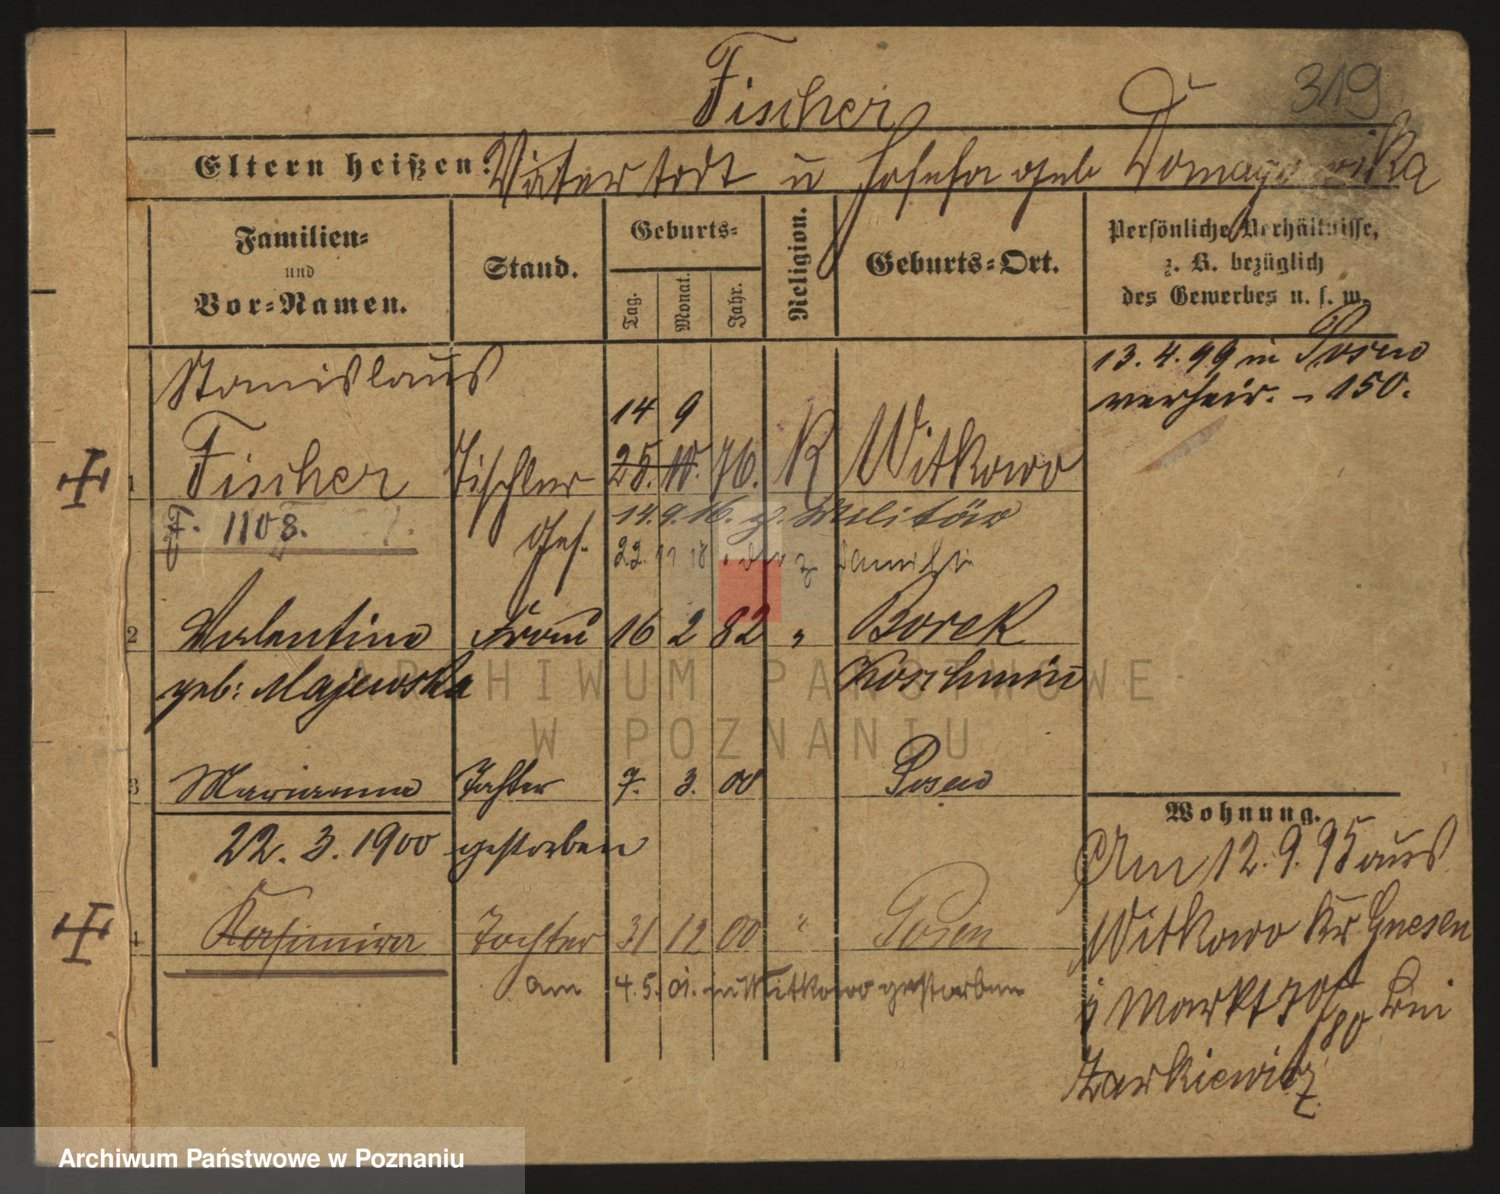 Fischer
319
Eltern heißen: Vater todt u Josefa geb
Familien=
und
Vor=Namen.
Stand.
Geburts=
Tag.
Monat.
Jahr.
Religion.
Geburts=Ort.
Persönliche Verhältnisse,
z. B. bezüglich
des Gewerbes u. s. w.
13. 4. 99 in Posen
verheir. – 150.
Stanislaus
14 9
1 Fischer Tischler 25. 10. 76. K Witkowo
1108. Ges. 14. 9. 16. z. Militär
22. 11 18
2 Valentine Frau 16 2 82 " Borek
geb: Majewska Koschmin
3 Marianna Tochter 7. 3. 00 Posen
22. 3. 1900 gestorben
4 Kasimira Tochter 31 12 00 " Posen
am 4. 5. 01. in Witkowo gestorben
Wohnung.
Am 12. 9. 95 aus
Witkowo Kr Gnesen
Markt bei
80
ARCHIWUM PAŃSTWOWE
W POZNANIU
Archiwum Państwowe w Poznaniu